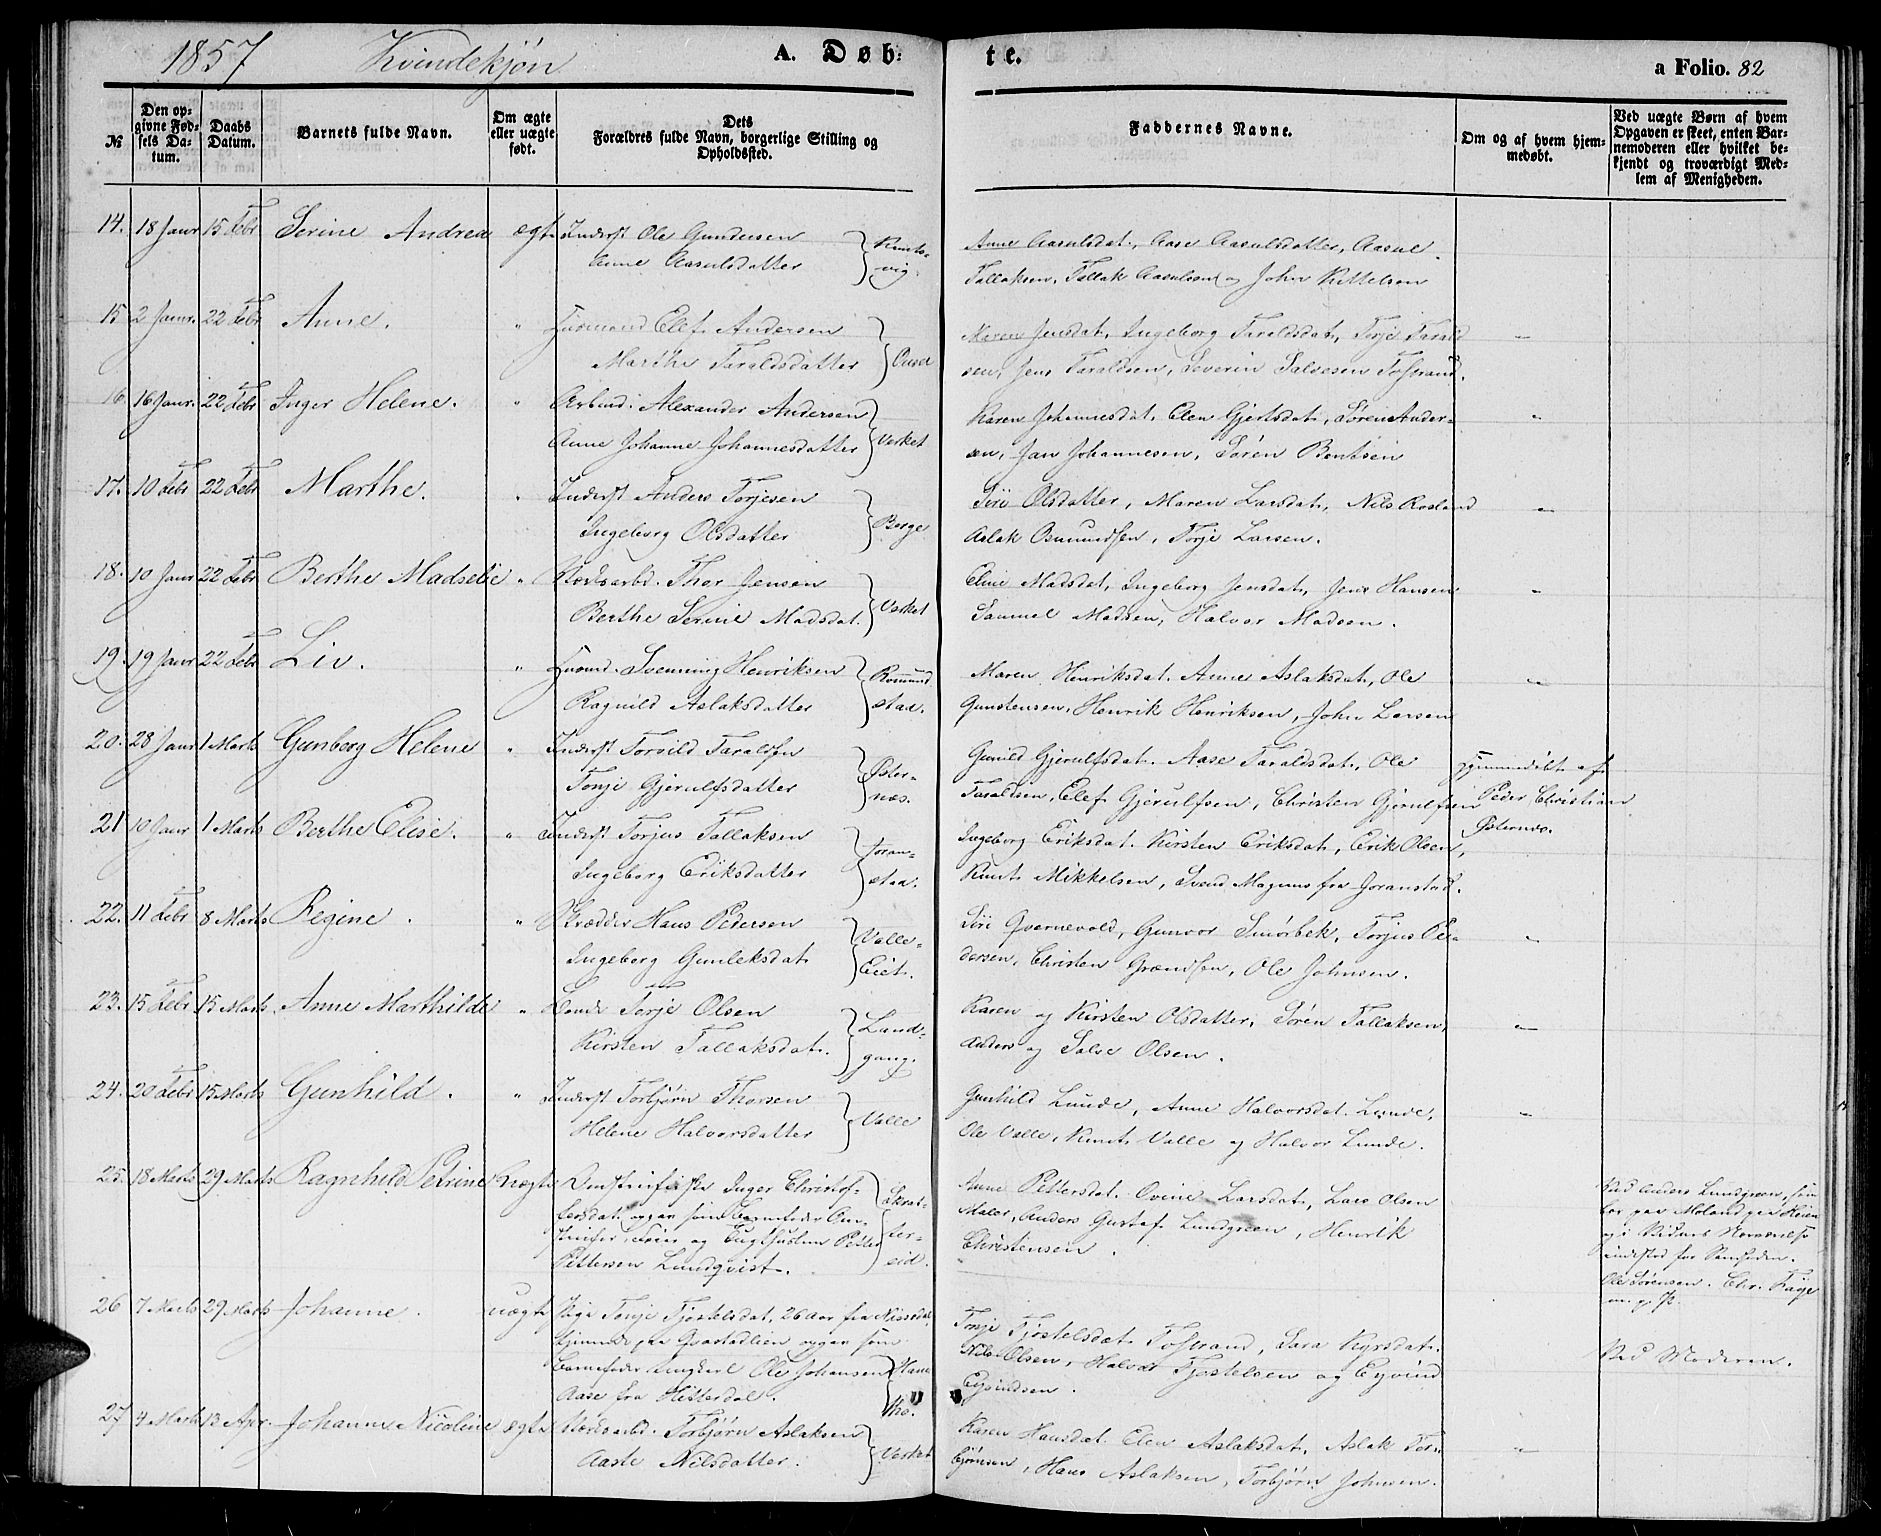 1857 Kvindekjøn A. Døb: te. a Folio. 82
№
Den op-
givne Fød-
sels Da-
tum.
Daabs
Datum.
Barnets fulde Navn.
Om ægte
eller uægte
født.
Dets
Forældres fulde Navn, borgerlige Stilling og
Opholdssted.
Faddernes Navne.
Om og af hvem hjem-
medøbt.
Ved uægte Børn af hvem
Opgaven er skeet, enten Bar-
nemoderen eller hvilket be-
kjendt og troværdigt Med-
lem af Menigheden.
14. 18 Janr 15 Febr Serine Andrea ægte Inderst Ole Gundersen
Anne Aasulsdatter
Anne Aasulsdat., Aase Aasulsdatter, Aasul
Tallaksen, Tallak Aasulsen og John Kittelsen
15 2 Janr. 22 Febr Anne. " Husmand Elef Andersen
Marthe Taraldsdatter
Maren Jensdat., Ingeborg Taraldsdat., Torje Tarald
sen, Jens Taraldsen, Severin Salvesen
16. 16 Janr. 22 Febr Inger Helene. " Arbeid. Alexander Andersen
Anne Johanne Johannesdatter Verket
Karen Johannesdat. Elen Gjertsdat., Søren Ander-
sen, Jan Johannesen, Søren Bentsen
17. 10 Febr 22 Febr Marthe. " Inderst Anders Torjesen
Ingeborg Olsdatter Berge
Siri Olsdatter, Maren Larsdat., Nils Rosland
Aslak Osmundsen, Torje Larsen.
18. 10 Janr 22 Febr Berthe Madselie " Værksarbd. Thor Jensen
Berthe Serine Madsdat. Verket
Eline Madsdat., Ingeborg Jensdat., Jens Hansen
Samuel Madsen, Halvor Madsen.
19. 19 Janr 22 Febr Liv. " Husmd. Svennung Henriksen
Ragnild Aslaksdatter Rommund
stad.
Maren Henriksdat. Anne Aslaksdat., Ole
Gunstensen, Henrik Henriksen, John Larsen
20. 28 Janr 1 Marts Gunborg Helene " Inderst Torvild Taraldsen
Tonje Gjerulfsdatter Øster-
næs.
Gunild Gjerulfsdat. Aase Taraldsdat., Ole
Taraldsen, Elef Gjerulfsen, Christen Gjerulfsen
Hjemmedøbt af
Peder Christian
Østernæs.
21 10 Janr 1 Marts Berthe Elise. " Inderst Torjus Tallaksen
Ingeborg Eriksdatter Joran-
stad.
Ingeborg Eriksdat. Kirsten Eriksdat., Erik Olsen,
Knut Mikkelsen, Svend Magnus fra Joranstad.
22. 11 Febr 8 Marts Regine. " Skrædder Hans Pedersen
Ingeborg Gunleksdat. Valle-
Eiet.
Siri Qvernevold, Gunvor Smørbek, Torjus Pe-
dersen, Christen Grundesen, Ole Johnsen.
23. 15 Febr 15 Marts Anne Marthilde " Torje Olsen
Kirsten Tallaksdat. Lund-
gang.
Karen og Kirsten Olsdatter, Søren Tallaksen,
Anders og Salve Olsen.
24. 20 Febr 15 Marts Gunhild. " Inderst Torbjørn Thorsen
Helene Halvorsdatter Valle
Gunhild Lunde, Anne Halvorsdat. Lunde,
Ole Valle, Knut Valle og Halvor Lunde.
25. 18 Marts 29 Marts Ragnhild Petrine Uægte Inger Christof-
fersdat. opgav som Barnefader
Petter
Pettersen Lundqvist. Skrat-
ter-
eid.
Anne Pettersdat. Ovine Larsdat., Lars Olsen
Maler, Anders Gustaf Lundgreen, Henrik
Christensen.
Ved Anders Lundgreen, som
bor paa Moland
indestod for Sandheden.
Ole Sørensen. Chr. Fage
26 7 Marts 29 Marts Johanne. uægte Pige Tonje Tjostelsdat., 26 Aar fra Nissedal,
hjemme paa Grastadlien opgav som
Barnefader Ungkarl Ole Johansen
Aase fra Hitterdal.
Tonje Tjøstelsdat. Sara Kyrsdat.
Nils Olsen, Halvor Tjostelsen og Eyvind
Eyvindsen.
Ved Moderen.
27 4 Marts 13 Apr. Johanne Nicoline ægte Værksarbd. Torbjørn Aslaksen
Aaste Nilsdatter. Verket
Karen Hansdat. Elen Aslaksdat., Aslak Tor-
bjørnsen, Hans Aslaksen, Torbjørn Johnsen.